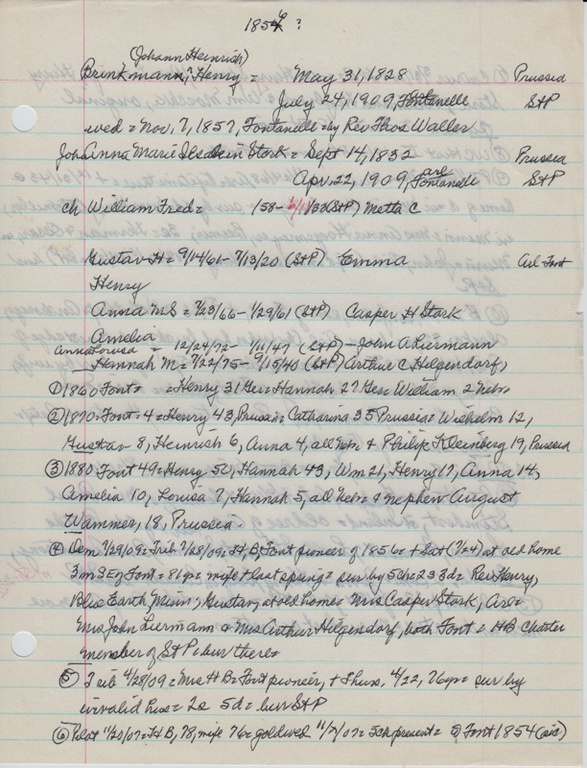 1856 ?
(Johann Heinrich)
Brinkmann, Henry = May 31, 1828 Prussia
July 24, 1909, Fontanelle StP
wed = Nov, 7, 1857, Fontanelle = by Rev Thos Waller
Joh Anna Marie Stork = Sept 14, 1832 Prussia
Apr. 22, 1909, Fontanelle StP
ch William Fred = (StP) Metta C
Gustav H = 9/14/61 - 7/13/20 (StP) Emma Arl-Font
Henry
Anna M S = 7/23/66 - 1/29/61 (StP) Casper H Stork
Amelia
Anna Louisa 12/24/72 - 1/11/47 (StP) - John A Liermann
Hannah M = 7/22/75 - 9/15/40 (StP) Arthur C Hilgendorf)
① 1860 Font = = Henry 31 Ger = Hannah 27 Ger = William 2 Nebr
② 1870 = Font = 4 = Henry 43, Prussia = Catharina 35 Prussia = Wilhelm 12,
Gustav 8, Heinrich 6, Anna 4, all Nebr & Philip Kleinberg 19, Prussia
③ 1880 Font 49 = Henry 52, Hannah 43, Wm 21, Henry 17, Anna 14,
Amelia 10, Louisa 7, Hannah 5, all Nebr & nephew August
Wammer, 18, Prussia
④ Dem 7/29/09 = Trib 7/28/09 = H, B, Font pioneer of 1856 = + Sat (7/24) at old home
3 m S E of Font = 81 yr = wife + last spring = sur by 5 ch = 2 s 3 d = Rev Henry,
Blue Earth Minn, Gustav, at old home = Mrs Casper Stork, Arl =
Mrs John Liermann & Mrs Arthur Hilgendorf, both Font = HB charter
member of St P = bur there =
⑤ Trib 4/28/09 = Mrs H B = Font pioneer, + Thurs, 4/22, 76 yr = sur by
invalid hus = 2s 5d = bur StP
⑥ Pilot 11/20/07 = H B, 78, wife 76 = gold wed 11/7/07 = 5 ch present = Font 1854 (sic)